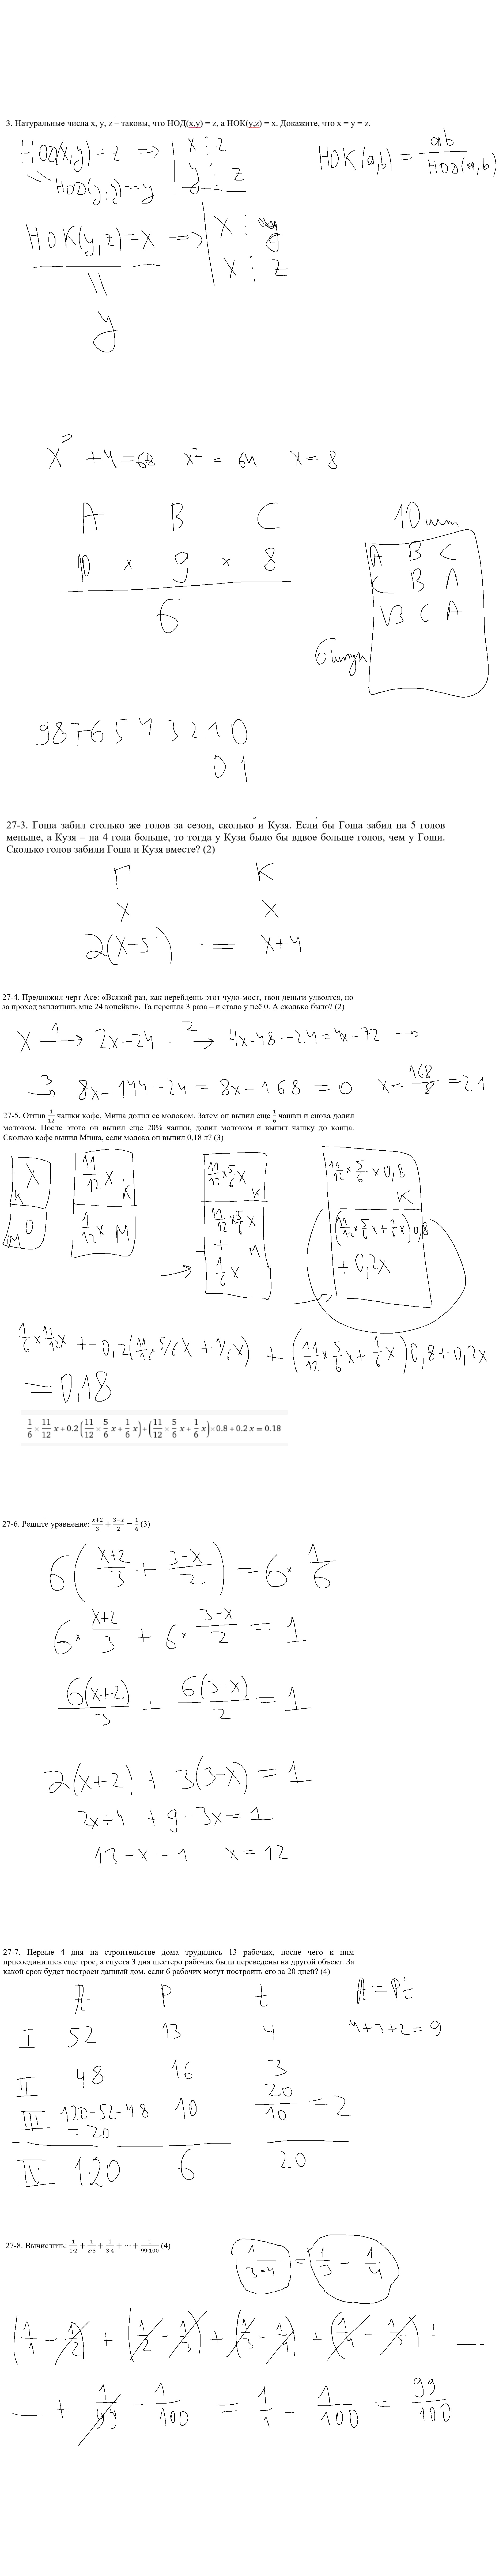 3. Натуральные числа x, y, z – таковы, что НОД(x,y) = z, а НОК(y,z) = x. Докажите, что x = y = z.
НОД(x,y) = z => x ⋮ z
НОД(y,y) = y y ⋮ z
НОК(a,b) = ab / НОД(a,b)
НОК(y,z) = x => x ⋮ y
x ⋮ z
y
x² + 4 = 68 x² = 64 x = 8
A B C
10 × 9 × 8
6
10 шт
A B C
C B A
B C A
6 штук
9 8 7 6 5 4 3 2 1 0
0 1
27-3. Гоша забил столько же голов за сезон, сколько и Кузя. Если бы Гоша забил на 5 голов
меньше, а Кузя – на 4 гола больше, то тогда у Кузи было бы вдвое больше голов, чем у Гоши.
Сколько голов забили Гоша и Кузя вместе? (2)
Г К
x x
2(x-5) = x+4
27-4. Предложил черт Асе: «Всякий раз, как перейдешь этот чудо-мост, твои деньги удвоятся, но
за проход заплатишь мне 24 копейки». Та перешла 3 раза – и стало у неё 0. А сколько было? (2)
x 1→ 2x-24 2→ 4x-48-24=4x-72 →
3→ 8x-144-24 = 8x-168 = 0 x = 168/8 = 21
27-5. Отпив 1/12 чашки кофе, Миша долил ее молоком. Затем он выпил еще 1/6 чашки и снова долил
молоком. После этого он выпил еще 20% чашки, долил молоком и выпил чашку до конца.
Сколько кофе выпил Миша, если молока он выпил 0,18 л? (3)
x К
0 М
11/12 x К
1/12 x М
11/12 × 5/6 x К
11/12 × 5/6 x + 1/6 x М
11/12 × 5/6 × 0,8 К
(11/12 × 5/6 x + 1/6 x) 0,8
+ 0,2x
1/6 × 11/12 x + 0,2(11/12 × 5/6 x + 1/6 x) + (11/12 × 5/6 x + 1/6 x) 0,8 + 0,2x
= 0,18
1/6 × 11/12 x + 0.2 (11/12 × 5/6 x + 1/6 x) + (11/12 × 5/6 x + 1/6 x) × 0.8 + 0.2 x = 0.18
27-6. Решите уравнение: (x+2)/3 + (3−x)/2 = 1/6 (3)
6((x+2)/3 + (3-x)/2) = 6 × 1/6
6 × (x+2)/3 + 6 × (3-x)/2 = 1
6(x+2)/3 + 6(3-x)/2 = 1
2(x+2) + 3(3-x) = 1
2x+4 + 9-3x = 1
13-x = 1 x = 12
27-7. Первые 4 дня на строительстве дома трудились 13 рабочих, после чего к ним
присоединились еще трое, а спустя 3 дня шестеро рабочих были переведены на другой объект. За
какой срок будет построен данный дом, если 6 рабочих могут построить его за 20 дней? (4)
A P t A = Pt
I 52 13 4 4+3+2=9
II 48 16 3
III 120-52-48 = 20 10 20/10 = 2
IV 120 6 20
27-8. Вычислить: 1/1·2 + 1/2·3 + 1/3·4 + ⋯ + 1/99·100 (4)
1/3·4 = 1/3 - 1/4
(1/1 - 1/2) + (1/2 - 1/3) + (1/3 - 1/4) + (1/4 - 1/5) + ...
... + 1/99 - 1/100 = 1/1 - 1/100 = 99/100